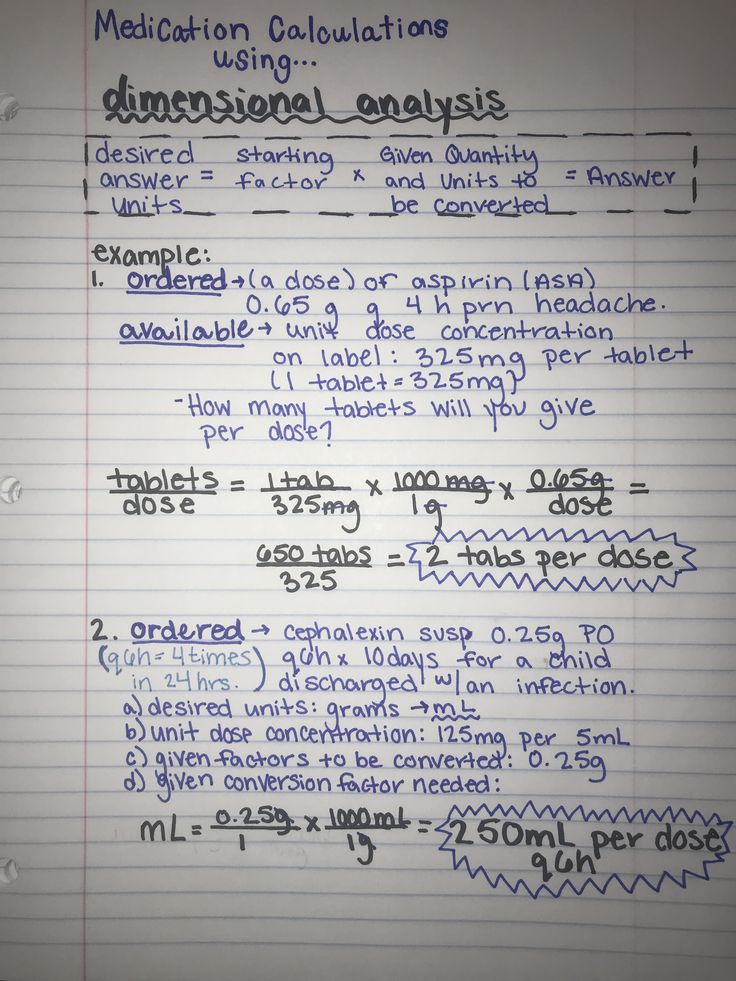 Medication Calculations
using...
dimensional analysis
desired starting Given Quantity
answer = factor x and units to = Answer
units be converted
example:
1. ordered → (a dose) of aspirin (ASA)
0.65 g q 4 h prn headache.
available → unit dose concentration
on label: 325mg per tablet
(1 tablet = 325mg)
-How many tablets will you give
per dose?
tablets/dose = 1 tab/325mg x 1000 mg/1g x 0.65g/dose =
650 tabs/325 = 2 tabs per dose
2. ordered → cephalexin susp 0.25g PO
(q6h = 4 times q6h x 10 days for a child
in 24 hrs.) discharged w/ an infection.
a) desired units: grams → mL
b) unit dose concentration: 125mg per 5mL
c) given factors to be converted: 0.25g
d) given conversion factor needed:
mL = 0.25g/1 x 1000mL/1g = 250mL per dose
q6h